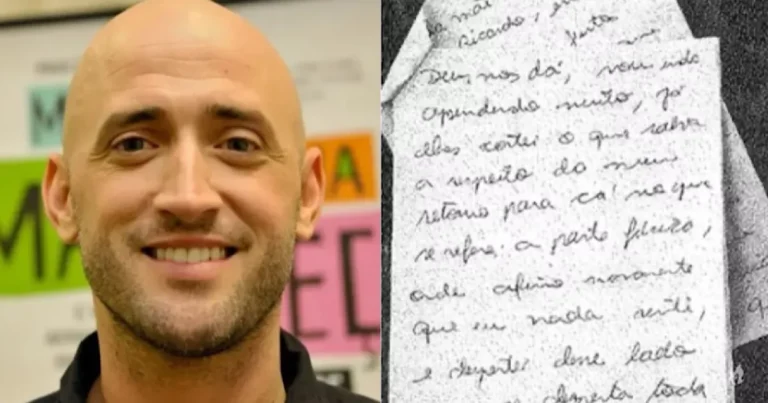 M
MA
A
EÇ
mãe
Ricardo,
Deus nos dá,
aprendendo muito, já
lhes contei o que sabia
a respeito do meu
retorno para cá no que
se refere a parte física,
onde afirmo novamente
que eu nada senti,
e despertei desse lado
desperta toda